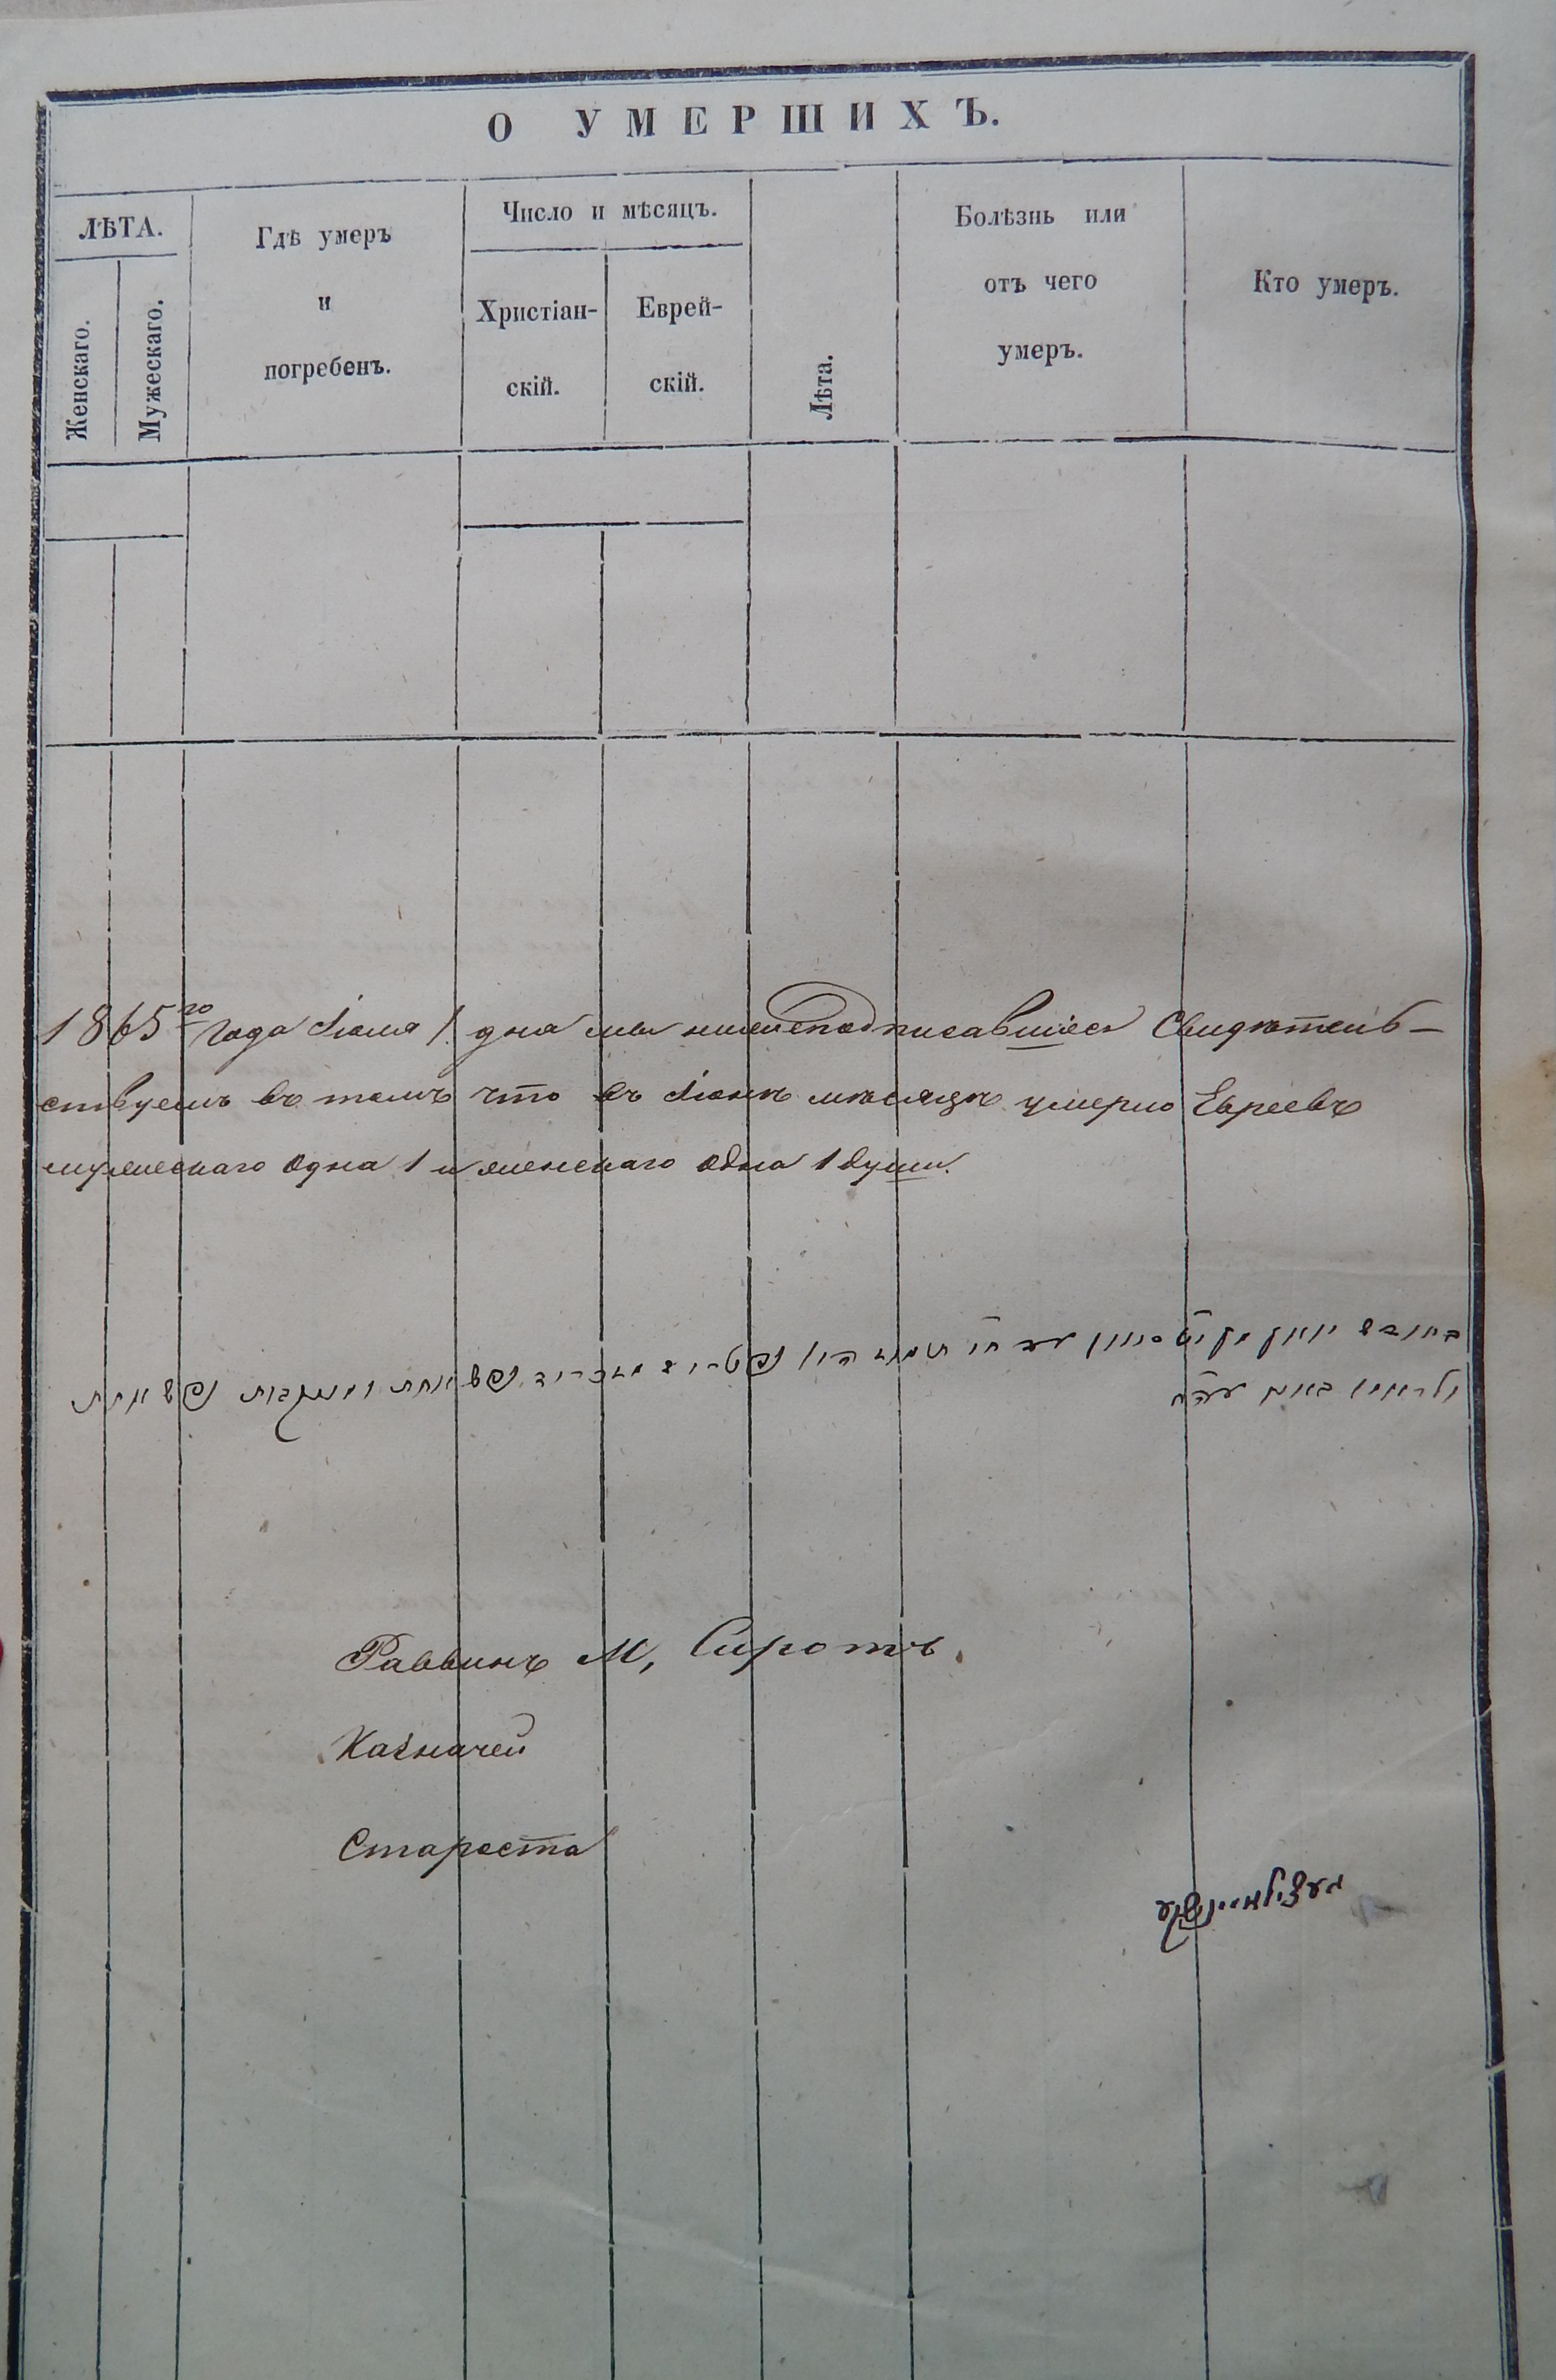 О УМЕРШИХЪ.
ЛѢТА.
Женскаго.
Мужескаго.
Гдѣ умеръ
и
погребенъ.
Число и мѣсяцъ.
Христіан-
скій.
Еврей-
скій.
Лѣта.
Болѣзнь или
отъ чего
умеръ.
Кто умеръ.
1865го года Іюля 1 дня мы нижеподписавшіеся Свидѣтель-
ствуемъ въ томъ что въ Іюнѣ мѣсяцѣ умерло Евреевъ
мужескаго одна 1 и женскаго одна 1 души.
Раввинъ М, Сиротъ
Казначей
Староста